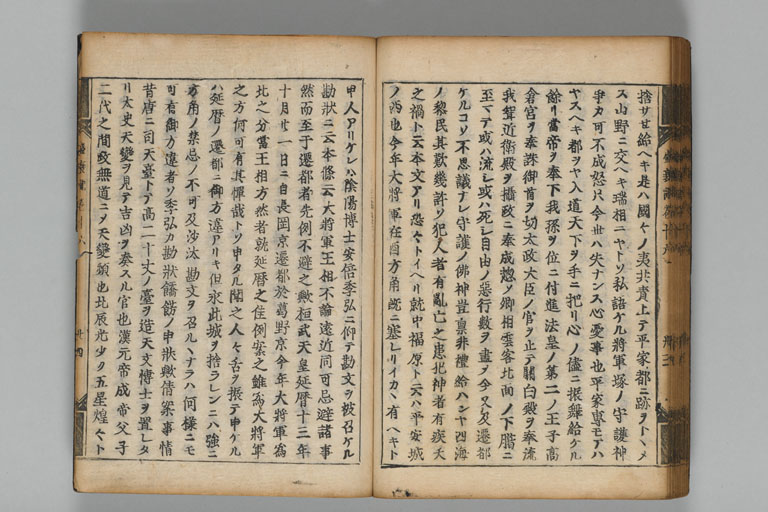 捨サセ給ヘキ是ハ國々ノ夷共責上テ平家都ニ跡ヲトヽメ
ス山野ニ交ヘキ瑞相ニヤトソ私語ケル將軍塚ノ守護神
爭カ可不成怒只今世ハ失ナンス心憂事也平家專モアハ
ヤスヘキ都ヲヤ入道天下ヲ手ニ把リ心ノ儘ニ振舞給ケル
餘リ當帝ヲ奉下我孫ヲ位ニ付進法皇ノ第二ノ王子高
倉宮ヲ奉誅御首ヲ切太政大臣ノ官ヲ止テ關白殿ヲ奉流
我聟近衛殿ヲ攝政ニ奉成惣ソ卿相雲客北面ノ下臈ニ
至マテ或ハ流シ或ハ死シ自由ノ惡行數ヲ盡メ今又及遷都
ケルコソ不思議ナレ守護ノ佛神豈禀非禮給ハンヤ四海
ノ黎民其歎幾許ソ犯人者有亂亡之患犯神者有疾夭
之禍ト云本文アリ恐々トイヘリ就中福原トハ平安城
ノ西也今年大將軍在酉方角既ニ塞レリイカヽ有ヘキト
申人アリケレハ陰陽博士安倍季弘ニ仰テ勘文ヲ被召ケル
勘狀ニ云本條云大將軍王相不論遠近同可忌避諸事
然而至于遷都者先例不避之歟桓武天皇延暦十三年
十月廿一日ニ自長岡京遷都於葛野京今年大將軍爲
此之分當王相方然者就延暦之佳例案之雖爲大將軍
之方何可有其憚哉トソ申タル聞之人々舌ヲ振テ申ケル
ハ延暦ノ遷都ニ御方違アリキ但永此城ヲ捨ラレンニハ強ニ
方角ノ禁忌ノ不可及沙汰勘文ヲ召ルヽナラハ何樣ニモ
可有御方違者ソ季弘カ勘狀ノ申狀歟情案事情
昔唐ニ司天臺トテ高二十丈ノ臺ヲ造天文博士ヲ置レタ
リ太史天變ヲ見テ吉凶ヲ奏スル官也漢元帝成帝父子
二代之間政無道ニメ天變頻也北辰光少ク五星煌々ト